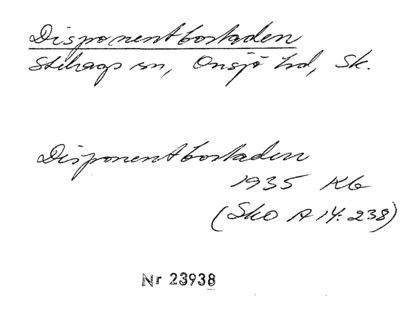 Disponentbostaden
Stehags sn, Onsjö hd, Sk.
Disponentbostaden
1935 Kb
(Sko A 14:238)
Nr 23938